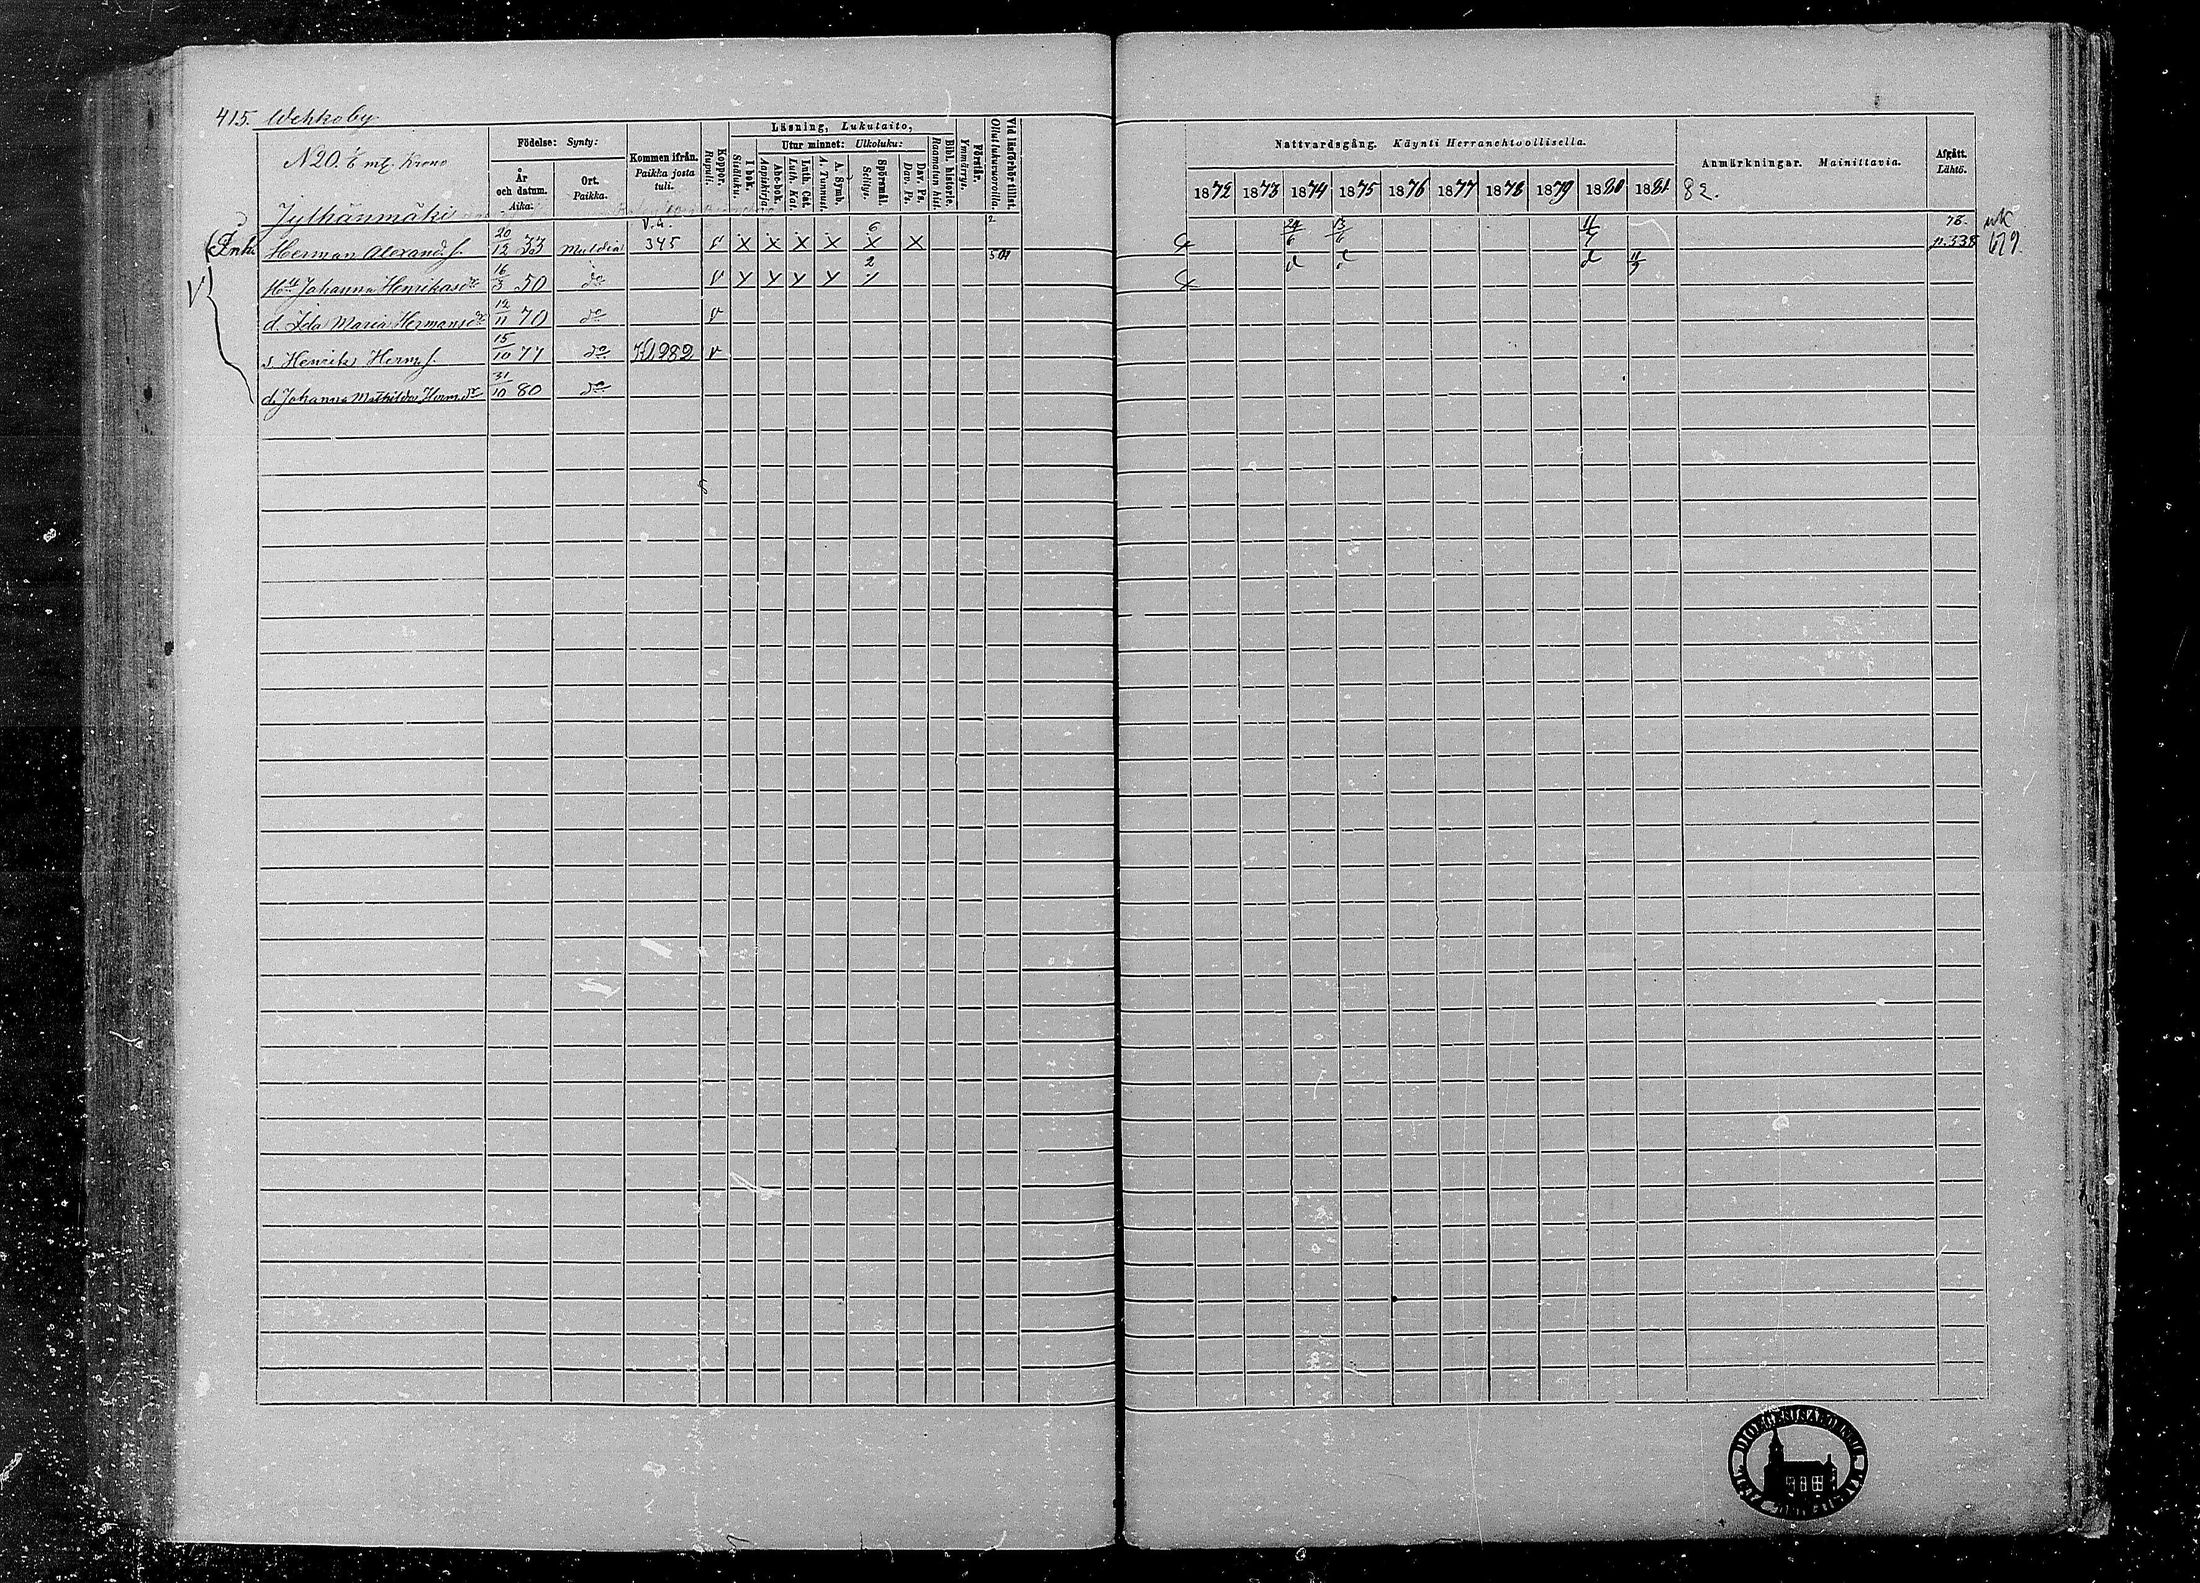 415. Wehkoby
N20. mt. Krono
Jylhänmäki
Födelse: Synty:
År och datum. Aika.
Ort. Paikka.
Kommen ifrån. Paikka josta tuli.
Koppor. Rupuli.
Läsning, Lukutaito,
I bok. Sisäluku.
Utur minnet: Ulkoluku:
Abc-bok. Aapiskirja.
Luth. Cat. Luth. Kat.
A. Symb. A. Tunnust.
Spörsmål. Selitys.
Dav. Ps. Dav. Ps.
Bibl. historie. Raamatun hist.
Förstår. Ymmärrys.
Vid läsförhör tillst. Ollut lukuvuoroilla.
Nattvardsgång. Käynti Herranehtoollisella.
1872 1873 1874 1875 1876 1877 1878 1879 1880 1881 82.
Anmärkningar. Mainittavia.
Afgått. Lähtö.
Inh. Herman Alexand. s. 20/12 33 Muldia 345 V X X X X 6 X X 24/6 13/6 11/7 76. p. 338
Johanna Henriksdr 16/3 50 do V 2 d d d
d. Ida Maria Hermansdr 12/11 70 do V
s. Henrik Herm s. 15/10 77 do 282 V
d. Johanna Mathilda Herm. dr 31/10 80 do